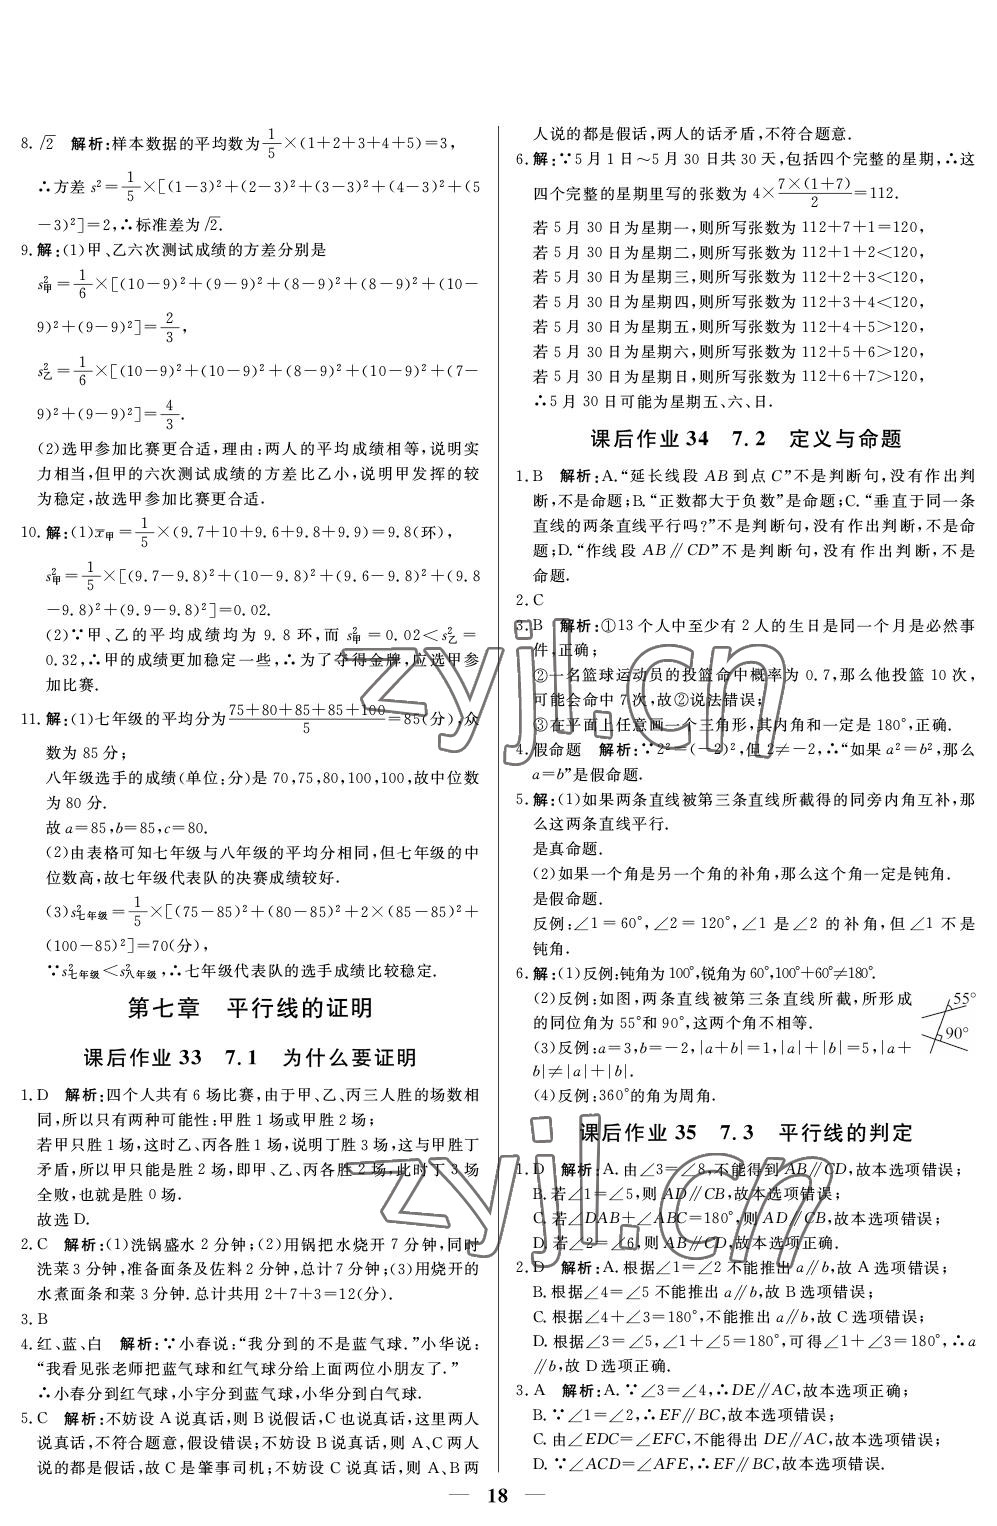 8. √2　解析:样本数据的平均数为1/5×(1+2+3+4+5)=3,
∴方差 s²=1/5×[(1-3)²+(2-3)²+(3-3)²+(4-3)²+(5
-3)²]=2,∴标准差为√2.
9. 解:(1)甲、乙六次测试成绩的方差分别是
s²甲=1/6×[(10-9)²+(9-9)²+(8-9)²+(8-9)²+(10-
9)²+(9-9)²]=2/3,
s²乙=1/6×[(10-9)²+(10-9)²+(8-9)²+(10-9)²+(7-
9)²+(9-9)²]=4/3.
(2)选甲参加比赛更合适,理由:两人的平均成绩相等,说明实
力相当,但甲的六次测试成绩的方差比乙小,说明甲发挥的较
为稳定,故选甲参加比赛更合适.
10. 解:(1)x̄甲=1/5×(9.7+10+9.6+9.8+9.9)=9.8(环),
s²甲=1/5×[(9.7-9.8)²+(10-9.8)²+(9.6-9.8)²+(9.8
-9.8)²+(9.9-9.8)²]=0.02.
(2)∵甲、乙的平均成绩均为 9.8 环,而 s²甲=0.02<s²乙=
0.32,∴甲的成绩更加稳定一些,∴为了夺得金牌,应选甲参
加比赛.
11. 解:(1)七年级的平均分为(75+80+85+85+100)/5=85(分),众
数为 85 分;
八年级选手的成绩(单位:分)是 70,75,80,100,100,故中位数
为 80 分.
故 a=85,b=85,c=80.
(2)由表格可知七年级与八年级的平均分相同,但七年级的中
位数高,故七年级代表队的决赛成绩较好.
(3)s²七年级=1/5×[(75-85)²+(80-85)²+2×(85-85)²+
(100-85)²]=70(分),
∵s²七年级<s²八年级,∴七年级代表队的选手成绩比较稳定.
第七章　平行线的证明
课后作业 33　7.1　为什么要证明
1. D　解析:四个人共有 6 场比赛,由于甲、乙、丙三人胜的场数相
同,所以只有两种可能性:甲胜 1 场或甲胜 2 场;
若甲只胜 1 场,这时乙、丙各胜 1 场,说明丁胜 3 场,这与甲胜丁
矛盾,所以甲只能是胜 2 场,即甲、乙、丙各胜 2 场,此时丁 3 场
全败,也就是胜 0 场.
故选 D.
2. C　解析:(1)洗锅盛水 2 分钟;(2)用锅把水烧开 7 分钟,同时
洗菜 3 分钟,准备面条及佐料 2 分钟,总计 7 分钟;(3)用烧开的
水煮面条和菜 3 分钟.总计共用 2+7+3=12(分).
3. B
4. 红、蓝、白　解析:∵小春说:“我分到的不是蓝气球.”小华说:
“我看见张老师把蓝气球和红气球分给上面两位小朋友了.”
∴小春分到红气球,小宇分到蓝气球,小华分到白气球.
5. C　解析:不妨设 A 说真话,则 B 说假话,C 也说真话,这里两人
说真话,不符合题意,假设错误;不妨设 B 说真话,则 A、C 两人
说的都是假话,故 C 是肇事司机;不妨设 C 说真话,则 A、B 两
人说的都是假话,两人的话矛盾,不符合题意.
6. 解:∵5 月 1 日～5 月 30 日共 30 天,包括四个完整的星期,∴这
四个完整的星期里写的张数为 4×7×(1+7)/2=112.
若 5 月 30 日为星期一,则所写张数为 112+7+1=120,
若 5 月 30 日为星期二,则所写张数为 112+1+2<120,
若 5 月 30 日为星期三,则所写张数为 112+2+3<120,
若 5 月 30 日为星期四,则所写张数为 112+3+4<120,
若 5 月 30 日为星期五,则所写张数为 112+4+5>120,
若 5 月 30 日为星期六,则所写张数为 112+5+6>120,
若 5 月 30 日为星期日,则所写张数为 112+6+7>120,
∴5 月 30 日可能为星期五、六、日.
课后作业 34　7.2　定义与命题
1. B　解析:A.“延长线段 AB 到点 C”不是判断句,没有作出判
断,不是命题;B.“正数都大于负数”是命题;C.“垂直于同一条
直线的两条直线平行吗?”不是判断句,没有作出判断,不是命
题;D.“作线段 AB∥CD”不是判断句,没有作出判断,不是
命题.
2. C
3. B　解析:①13 个人中至少有 2 人的生日是同一个月是必然事
件,正确;
②一名篮球运动员的投篮命中概率为 0.7,那么他投篮 10 次,
可能会命中 7 次,故②说法错误;
③在平面上任意画一个三角形,其内角和一定是 180°,正确.
4. 假命题　解析:∵2²=(-2)²,但 2≠-2,∴“如果 a²=b²,那么
a=b”是假命题.
5. 解:(1)如果两条直线被第三条直线所截得的同旁内角互补,那
么这两条直线平行.
是真命题.
(2)如果一个角是另一个角的补角,那么这个角一定是钝角.
是假命题.
反例:∠1=60°,∠2=120°,∠1 是∠2 的补角,但∠1 不是
钝角.
6. 解:(1)反例:钝角为 100°,锐角为 60°,100°+60°≠180°.
(2)反例:如图,两条直线被第三条直线所截,所形成
的同位角为 55°和 90°,这两个角不相等.
55°
90°
(3)反例:a=3,b=-2,|a+b|=1,|a|+|b|=5,|a+
b|≠|a|+|b|.
(4)反例:360°的角为周角.
课后作业 35　7.3　平行线的判定
1. D　解析:A.由∠3=∠8,不能得到 AB∥CD,故本选项错误;
B.若∠1=∠5,则 AD∥CB,故本选项错误;
C.若∠DAB+∠ABC=180°,则 AD∥CB,故本选项错误;
D.若∠2=∠6,则 AB∥CD,故本选项正确.
2. D　解析:A.根据∠1=∠2 不能推出 a∥b,故 A 选项错误;
B.根据∠4=∠5 不能推出 a∥b,故 B 选项错误;
C.根据∠4+∠3=180°,不能推出 a∥b,故 C 选项错误;
D.根据∠3=∠5,∠1+∠5=180°,可得∠1+∠3=180°,∴a
∥b,故 D 选项正确.
3. A　解析:A.∵∠3=∠4,∴DE∥AC,故本选项正确;
B.∵∠1=∠2,∴EF∥BC,故本选项错误;
C.由∠EDC=∠EFC,不能得出 DE∥AC,故本选项错误;
D.∵∠ACD=∠AFE,∴EF∥BC,故本选项错误.
— 18 —
zyjl.cn
zyjl.cn